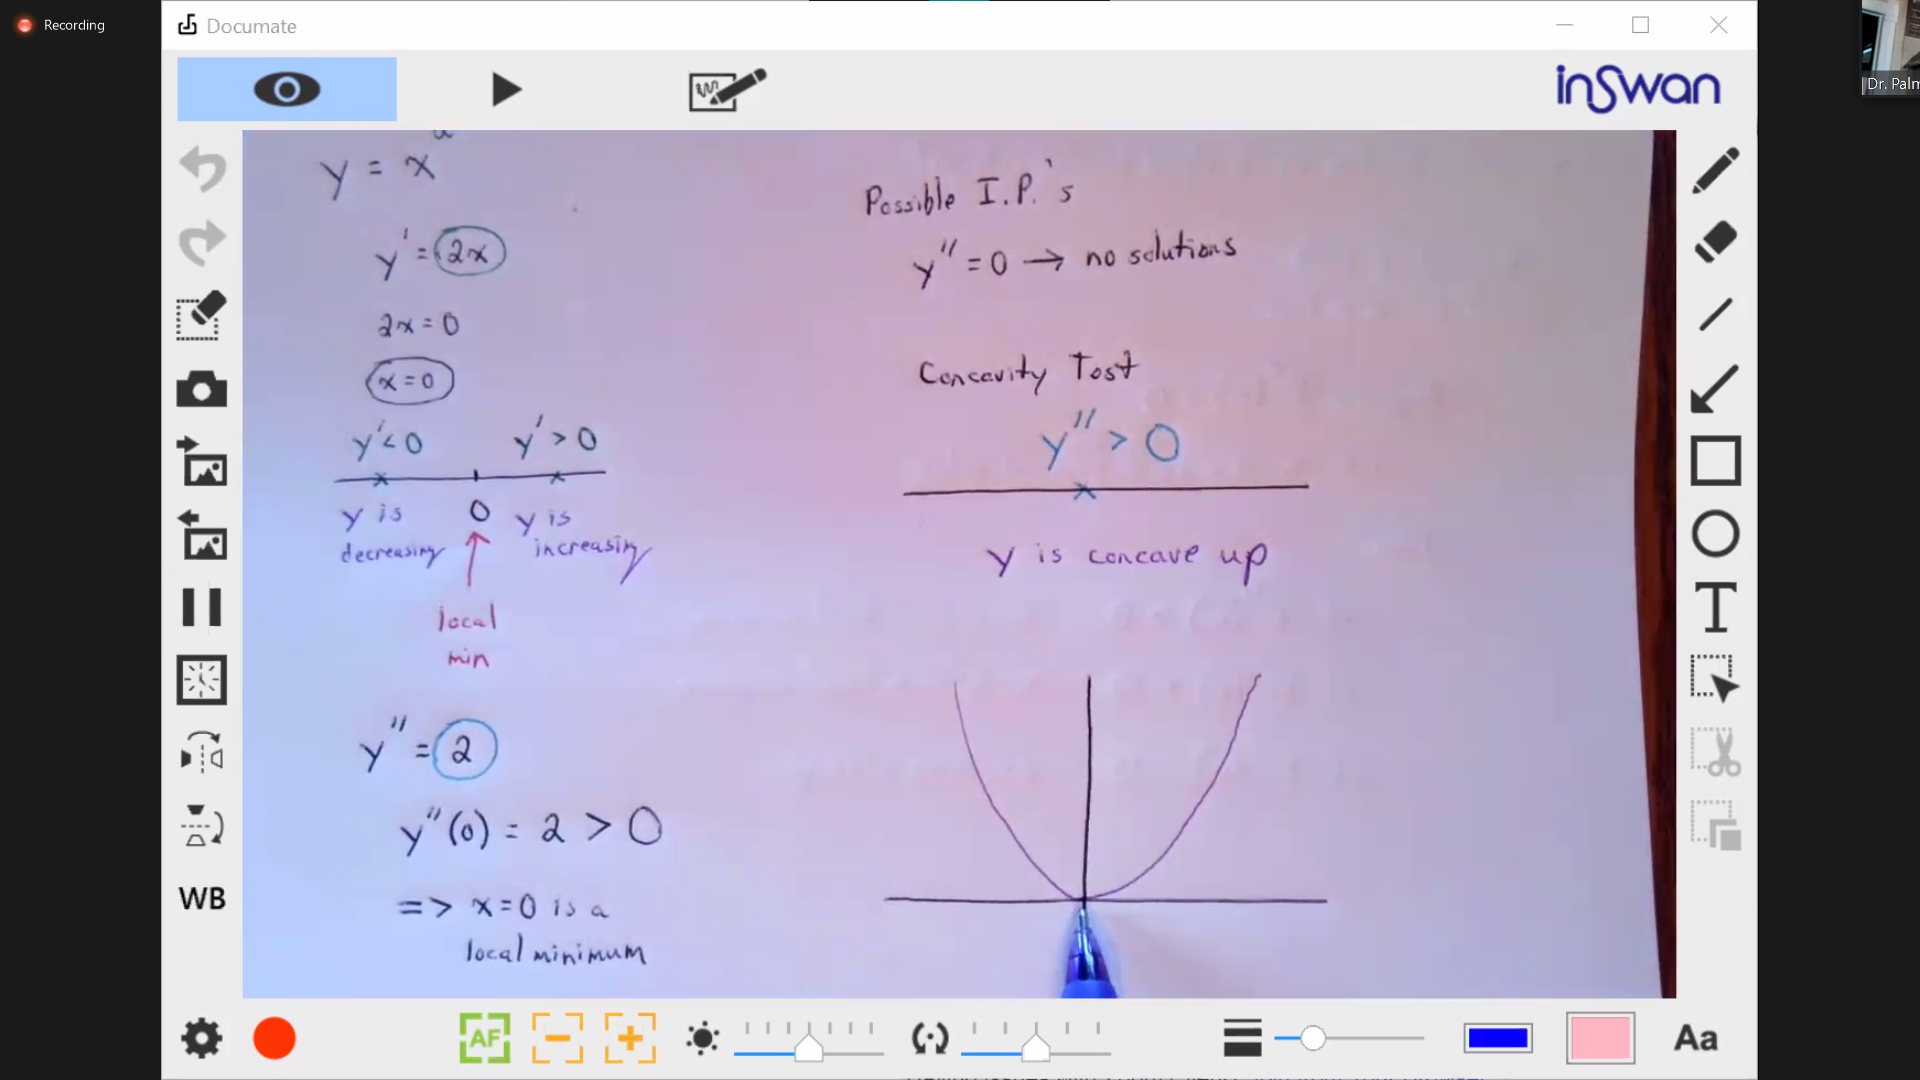 Recording
Documate
inSwan
Dr. Palm
y = x²
y' = 2x
2x = 0
x = 0
y' < 0 y' > 0
0
y is decreasing
y is increasing
local
min
y'' = 2
y''(0) = 2 > 0
=> x = 0 is a
local minimum
Possible I.P.'s
y'' = 0 → no solutions
Concavity Test
y'' > 0
y is concave up
T
WB
AF
Aa